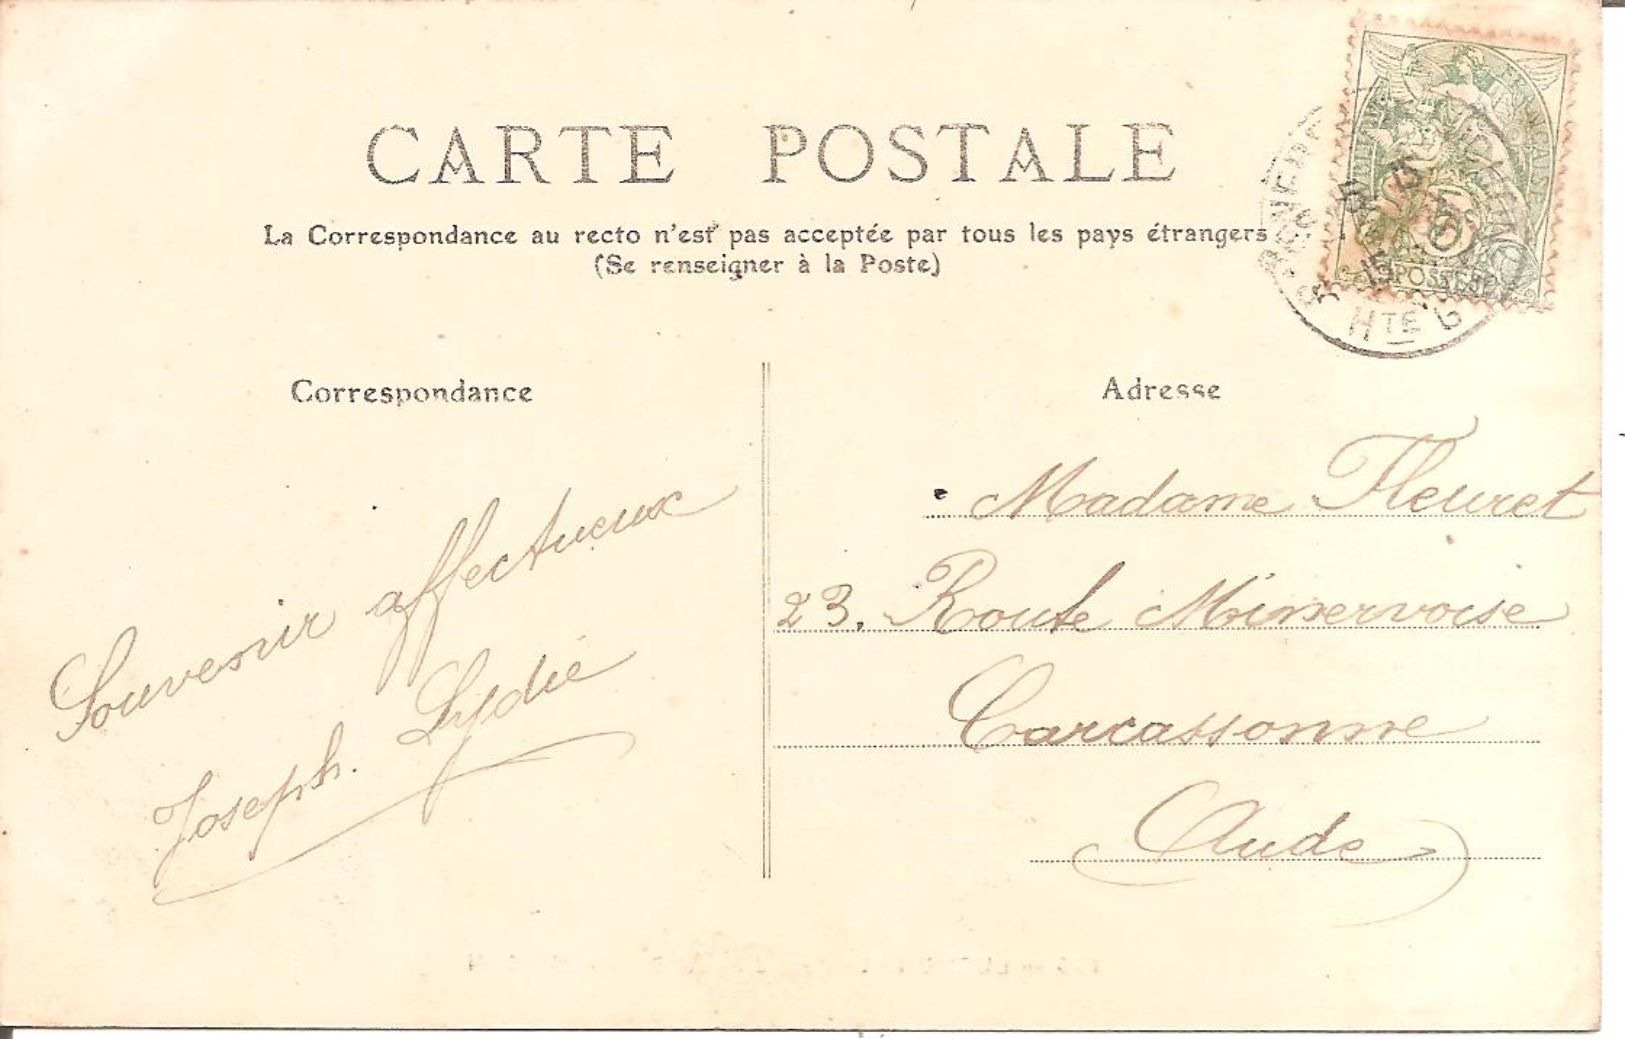 CARTE POSTALE
La Correspondance au recto n'est pas acceptée par tous les pays étrangers
(Se renseigner à la Poste)
HTE G
Correspondance
Souvenir affectueux
Joseph. Lydie
Adresse
Madame Fleuret
23. Route Minervoise
Carcassonne
Aude